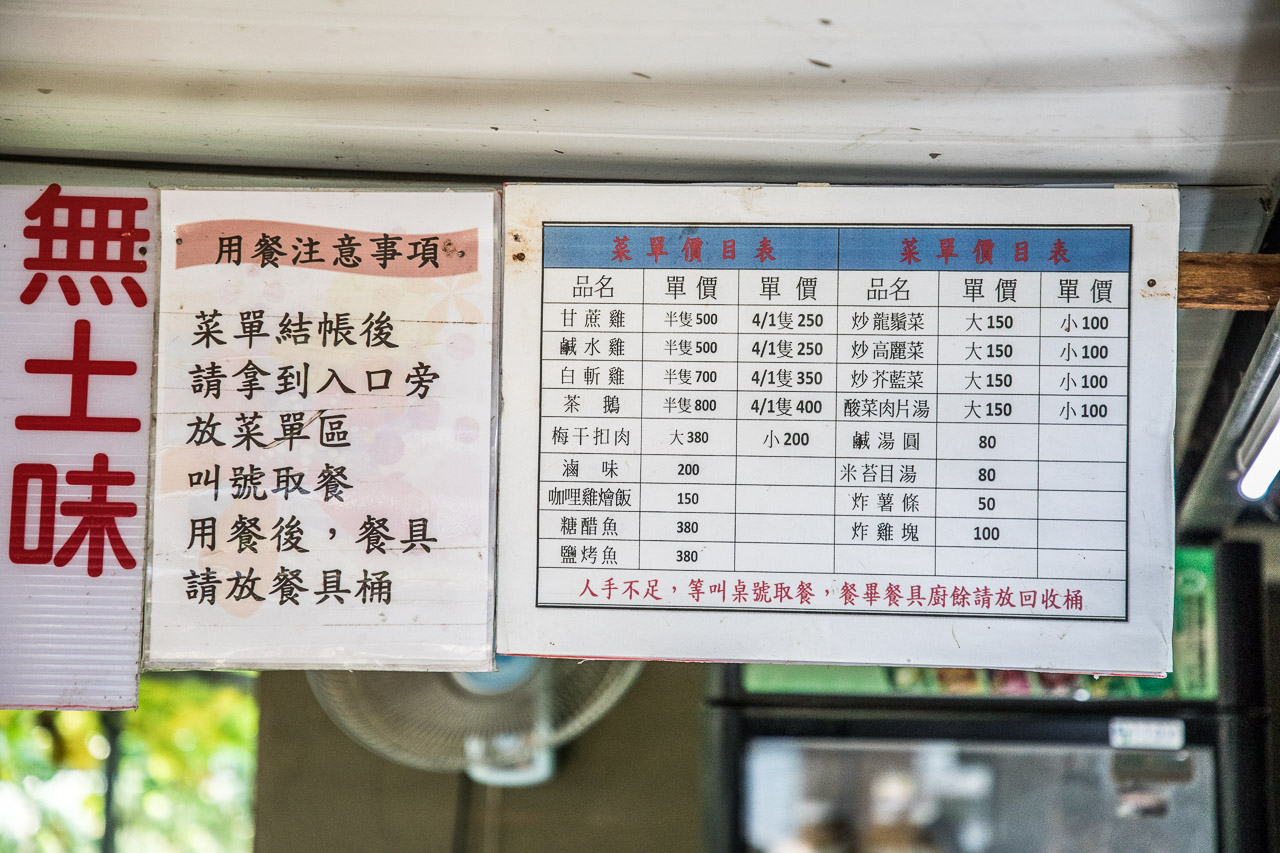 無土味
用餐注意事項
菜單結帳後
請拿到入口旁
放菜單區
叫號取餐
用餐後，餐具
請放餐具桶
菜單價目表 菜單價目表
品名 單價 單價 品名 單價 單價
甘蔗雞 半隻500 4/1隻250 炒龍鬚菜 大150 小100
鹹水雞 半隻500 4/1隻250 炒高麗菜 大150 小100
白斬雞 半隻700 4/1隻350 炒芥藍菜 大150 小100
茶鵝 半隻800 4/1隻400 酸菜肉片湯 大150 小100
梅干扣肉 大380 小200 鹹湯圓 80
滷味 200 米苔目湯 80
咖哩雞燴飯 150 炸薯條 50
糖醋魚 380 炸雞塊 100
鹽烤魚 380
人手不足，等叫桌號取餐，餐畢餐具廚餘請放回收桶